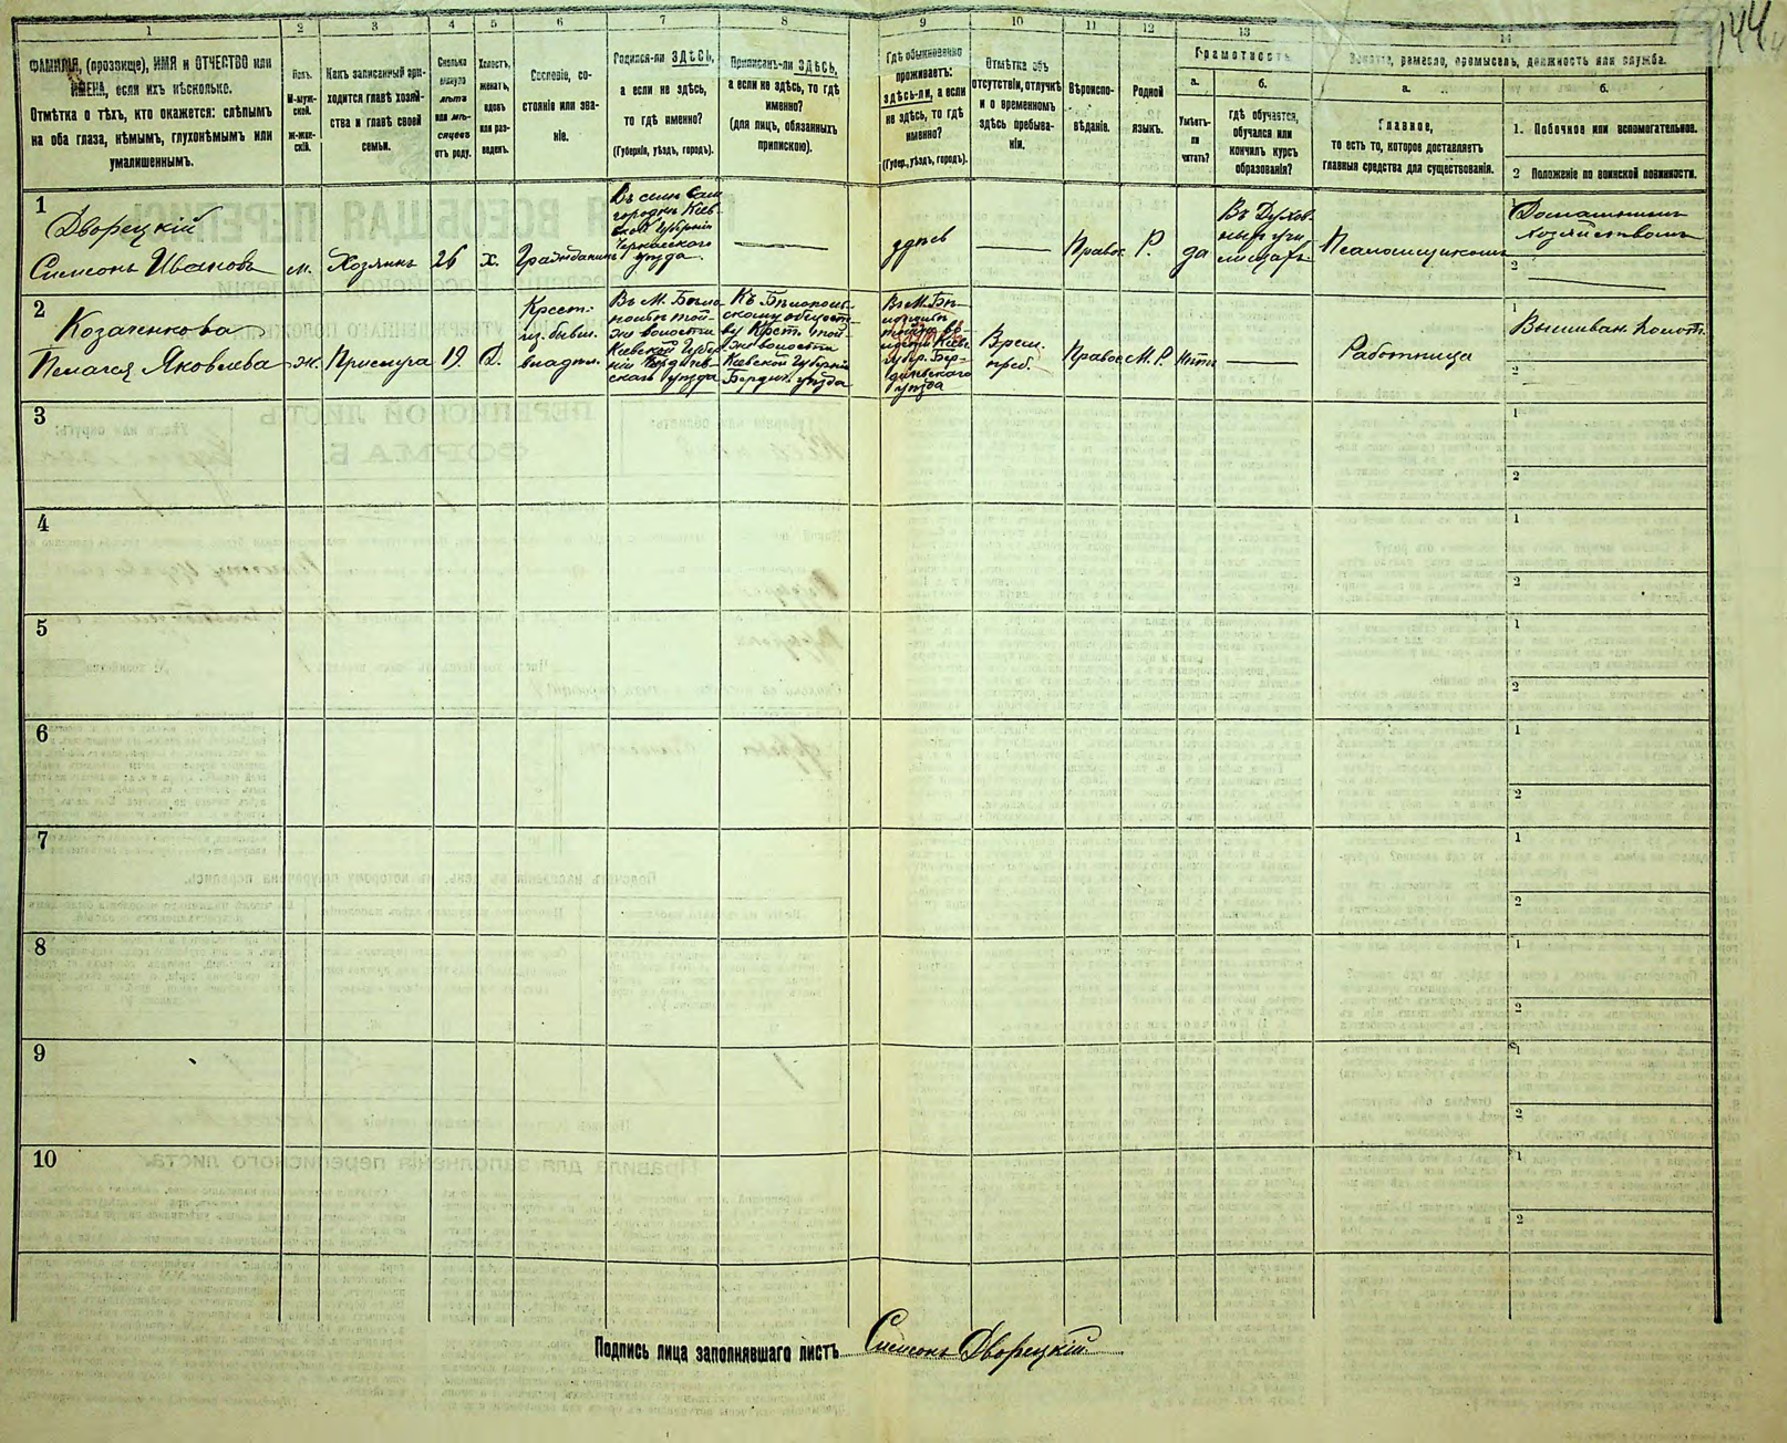 1 2 3 4 5 6 7 8 9 10 11 12 13 14
ФАМИЛІЯ, (прозвище), ИМЯ и ОТЧЕСТВО или
ИМЕНА, если ихъ нѣсколько.
Отмѣтка о тѣхъ, кто окажется: слѣпымъ
на оба глаза, нѣмымъ, глухонѣмымъ или
умалишеннымъ.
Полъ.
М-муж-
ской.
ж-жен-
скій.
Какъ записанный при-
ходится главѣ хозяй-
ства и главѣ своей
семьи.
Сколько
минуло
лѣтъ
или мѣ-
сяцевъ
отъ роду.
Холостъ,
женатъ,
вдовъ
или раз-
веденъ.
Сословіе, со-
стояніе или зва-
ніе.
Родился-ли ЗДѢСЬ,
а если не здѣсь,
то гдѣ именно?
(Губернія, уѣздъ, городъ).
Приписанъ-ли ЗДѢСЬ,
а если не здѣсь, то гдѣ
именно?
(для лицъ, обязанныхъ
припискою).
Гдѣ обыкновенно
проживаетъ:
здѣсь-ли, а если
не здѣсь, то гдѣ
именно?
(Губер., уѣздъ, городъ).
Отмѣтка объ
отсутствіи, отлучкѣ
и о временномъ
здѣсь пребыва-
ніи.
Вѣроиспо-
вѣданіе.
Родной
языкъ.
Грамотность.
а.
Умѣетъ-
ли
читать?
б.
гдѣ обучается,
обучался или
кончилъ курсъ
образованія?
Занятіе, ремесло, промыселъ, должность или служба.
а.
Главное,
то есть то, которое доставляетъ
главныя средства для существованія.
б.
1. Побочное или вспомогательное.
2 Положеніе по воинской повинности.
1
Дворецкій
Симеонъ Ивановъ
м.
Хозяинъ
26
х.
Гражданинъ
Въ селѣ
городкѣ Кіев-
ской Губерніи
Черкасскаго
уѣзда.
здѣсь
Правос.
Р.
да
Въ Духов-
номъ учи-
лищѣ.
Псаломщикомъ
Домашнимъ
хозяйствомъ
2
2
Козаченкова
Пелагея Яковлева
ж.
Прислуга
19.
Д.
Крест.
из. бывш.
владѣл.
Въ М. Бѣло-
польѣ той-
же волости
Кіевской Губер-
ніи Бердичев-
скаго уѣзда
Къ Бѣлополь-
скому общест-
ву Крест. той-
же волости
Кіевской Губерніи
Бердич. уѣзда
Въ М. Бѣ-
лопольѣ
той-же во-
лости Кіев.
губер. Бер-
дичевскаго
уѣзда
Врем.
преб.
Правос.
М. Р.
нѣтъ
Работница
1
Вышиван.
2
3
1
2
4
1
2
5
1
2
6
1
2
7
1
2
8
1
2
9
1
2
10
1
2
Подпись лица заполнявшаго листъ Симеонъ Дворецкій.